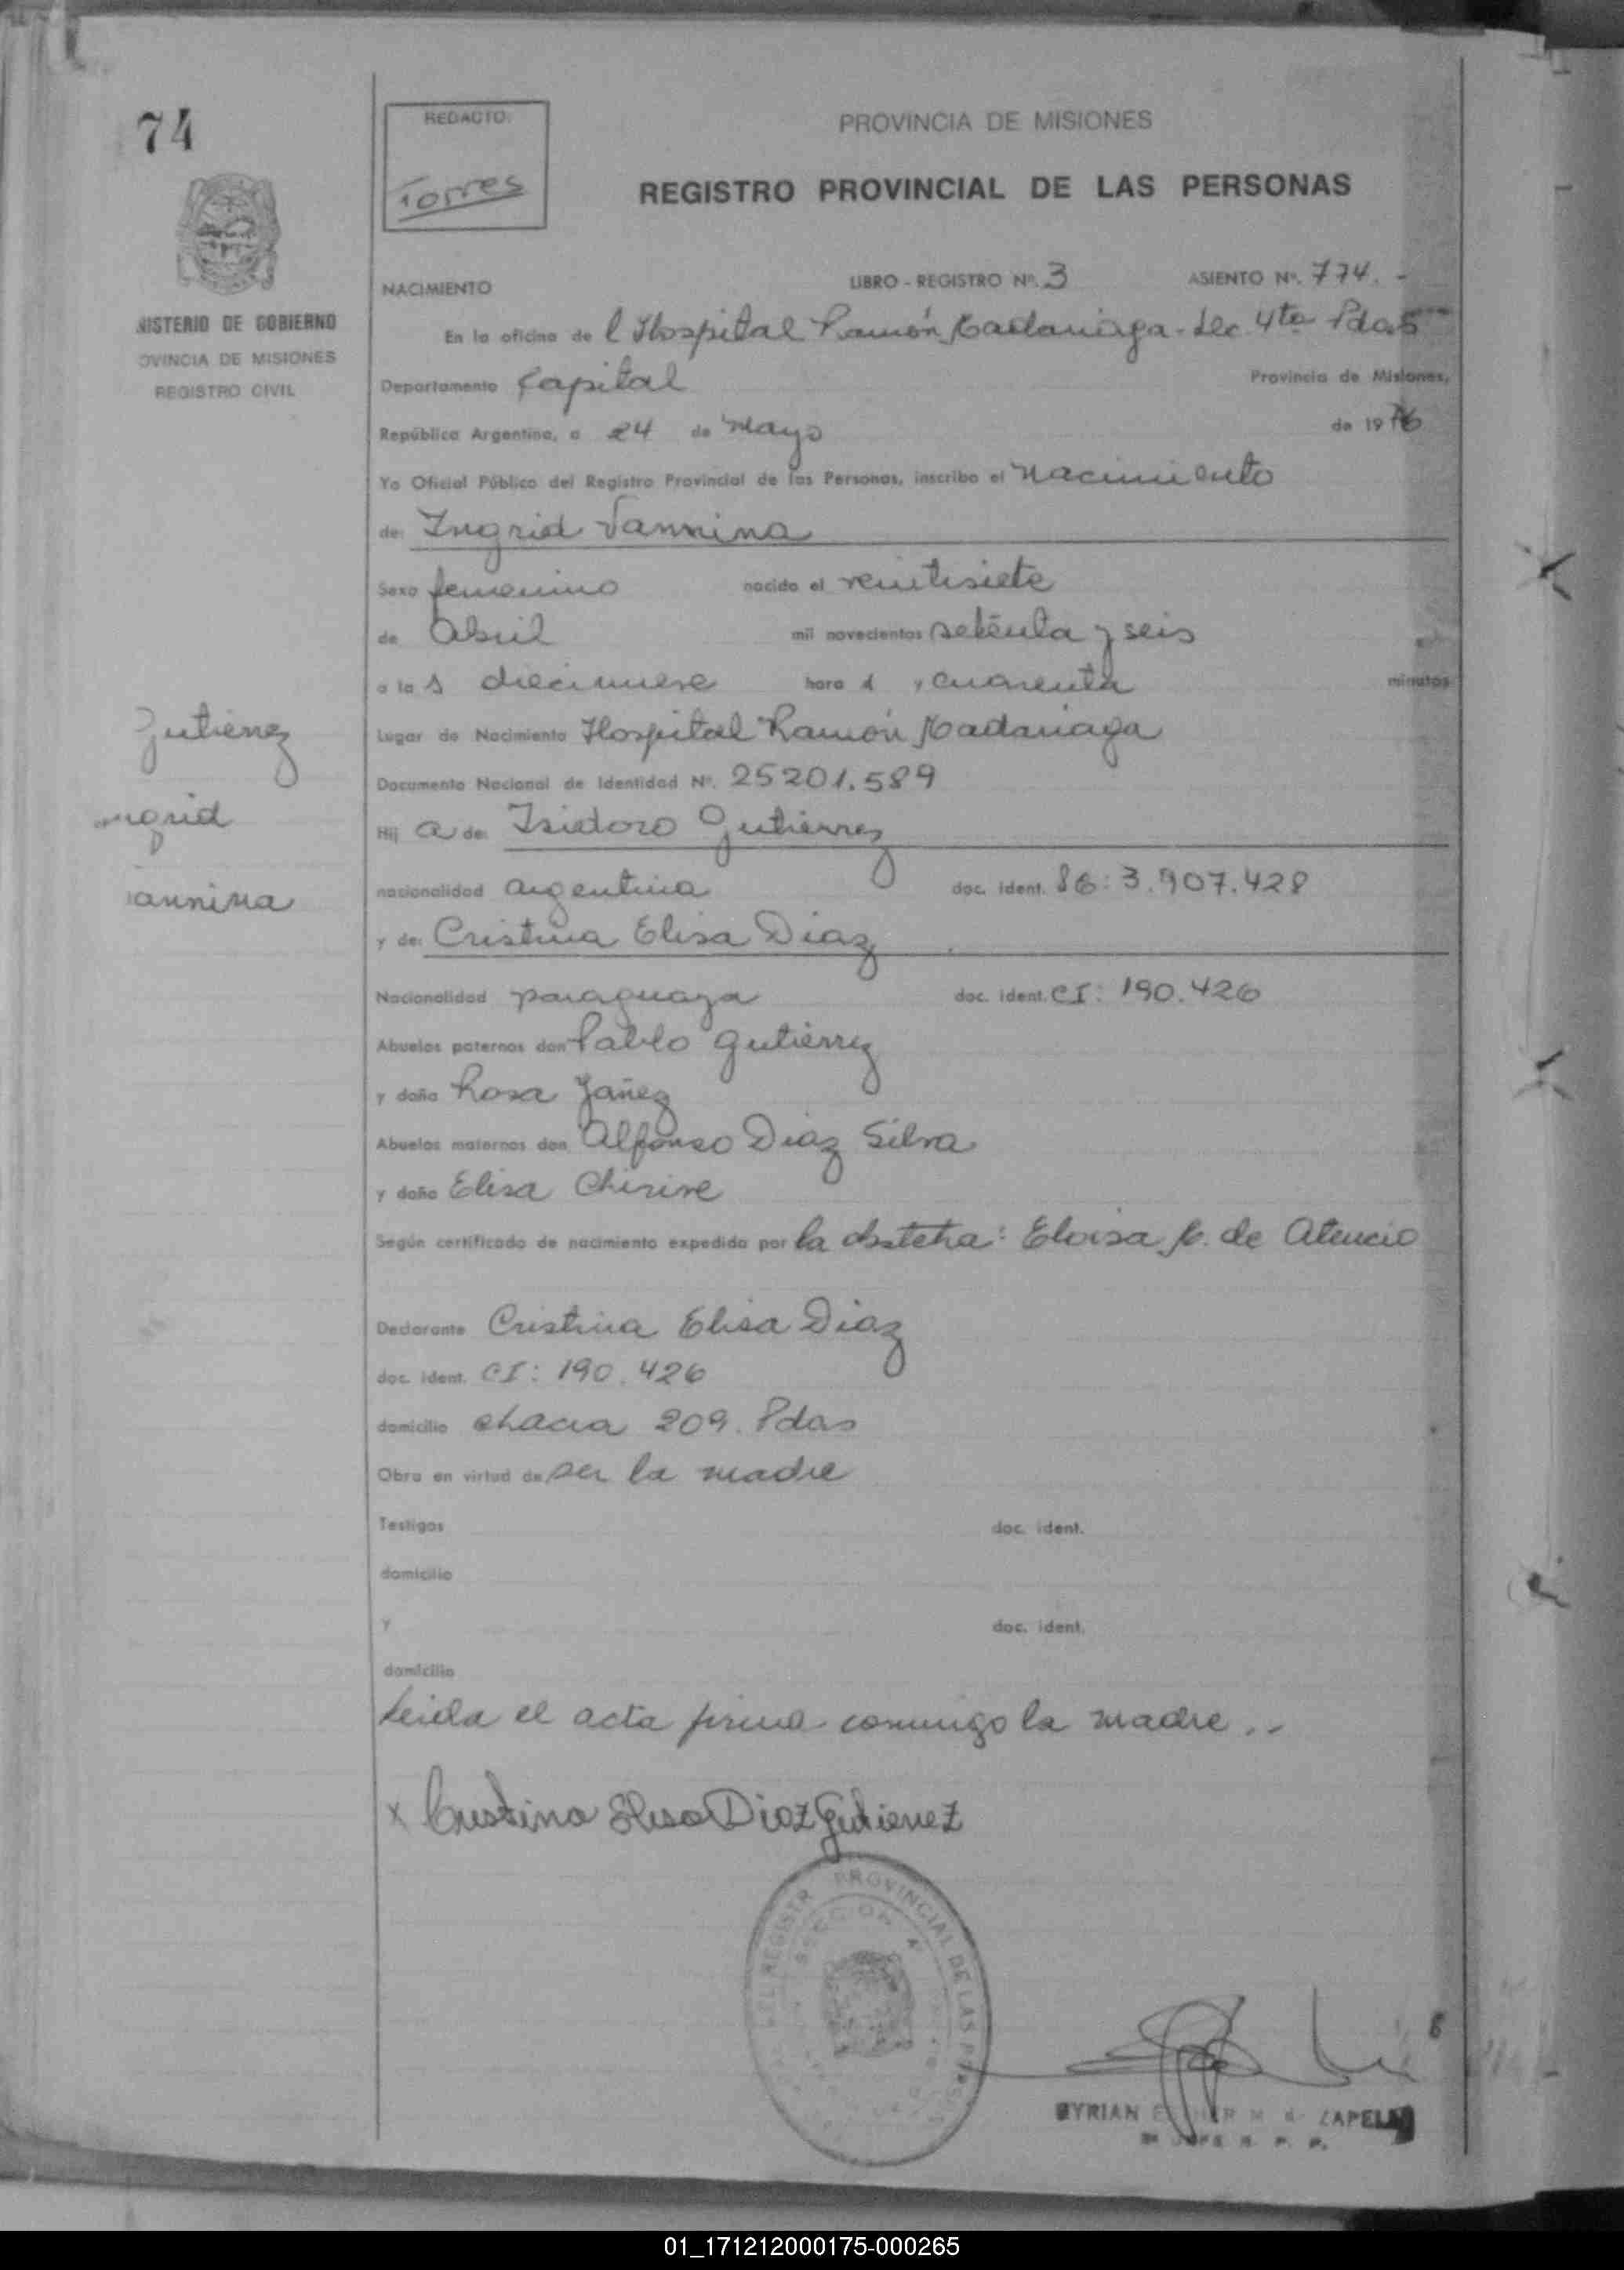 74
REDACTO:
Torres
PROVINCIA DE MISIONES
REGISTRO PROVINCIAL DE LAS PERSONAS
NISTERIO DE GOBIERNO
OVINCIA DE MISIONES
REGISTRO CIVIL
NACIMIENTO LIBRO - REGISTRO Nº. 3 ASIENTO Nº. 774. -
En la oficina de l Hospital Ramón Madariaga - Sec. 4ta Pdas
Departamento Capital Provincia de Misiones,
República Argentina, a 24 de Mayo de 1976
Yo Oficial Público del Registro Provincial de las Personas, inscribo el Nacimiento
de: Ingrid Vannina
Sexo femenino nacido el veintisiete
de Abril mil novecientos setenta y seis
a la s diecinueve hora s y cuarenta minutos
Lugar de Nacimiento Hospital Ramón Madariaga
Documento Nacional de Identidad Nº. 25201.589
Hij a de: Isidoro Gutierrez
nacionalidad argentina doc. ident. 3.907.428
y de: Cristina Elisa Diaz
Nacionalidad paraguaya doc. ident. CI: 190.426
Abuelos paternos don Pablo Gutierrez
y doña Rosa Yañez
Abuelos maternos don Alfonso Diaz Silva
y doña Elisa Chirive
Según certificado de nacimiento expedido por la obstetra: Eloisa M. de Atencio
Declarante Cristina Elisa Diaz
doc. ident. CI: 190.426
domicilio chacra 209. Pdas
Obra en virtud de ser la madre
Testigos doc. ident.
domicilio
y doc. ident.
domicilio
Leida el acta firma conmigo la madre..
x Cristina Elisa Diaz Gutierrez
Gutierrez
ngrid
annina
REGISTR PROVINCIAL DE LAS
ZAPELA
01_171212000175-000265